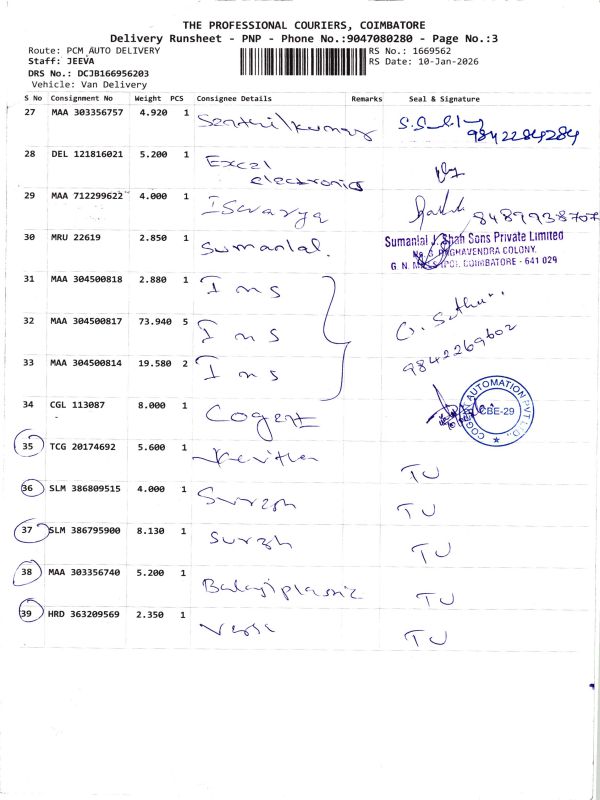 THE PROFESSIONAL COURIERS, COIMBATORE
Delivery Runsheet - PNP - Phone No.:9047080280 - Page No.:3
Route: PCM AUTO DELIVERY RS No.: 1669562
Staff: JEEVA RS Date: 10-Jan-2026
DRS No.: DCJB166956203
Vehicle: Van Delivery
S No Consignment No Weight PCS Consignee Details Remarks Seal & Signature
27 MAA 303356757 4.920 1 Senthilkumar 9842284284
28 DEL 121816021 5.200 1 Excel
electronics
29 MAA 712299622 4.000 1 Iswarya
30 MRU 22619 2.850 1 Sumanlal.
Sumanlal J. Shah Sons Private Limited
RAGHAVENDRA COLONY,
COIMBATORE - 641 029
31 MAA 304500818 2.880 1 Ims
32 MAA 304500817 73.940 5 Ims
9842269602
33 MAA 304500814 19.580 2 Ims
34 CGL 113087 8.000 1 Cogent
COGENT AUTOMATION PVT LTD.,
CBE-29
35 TCG 20174692 5.600 1 TU
36 SLM 386809515 4.000 1 Suresh TU
37 SLM 386795900 8.130 1 Suresh TU
38 MAA 303356740 5.200 1 TU
39 HRD 363209569 2.350 1 TU